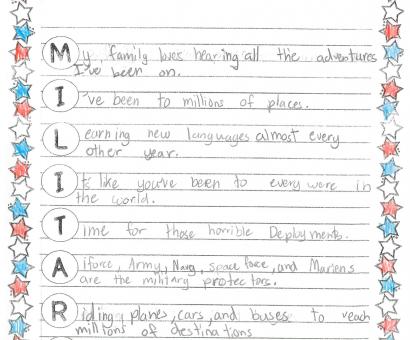 My family loves hearing all the adventures
I've been on.
I've been to millions of places.
Learning new languages almost every
other year.
It's like you've been to every were in
the world.
Time for those horrible Deployments.
Airforce, Army, Navy, space force, and Mariens
are the military protectors.
Riding planes, cars, and buses to reach
millions of destinations